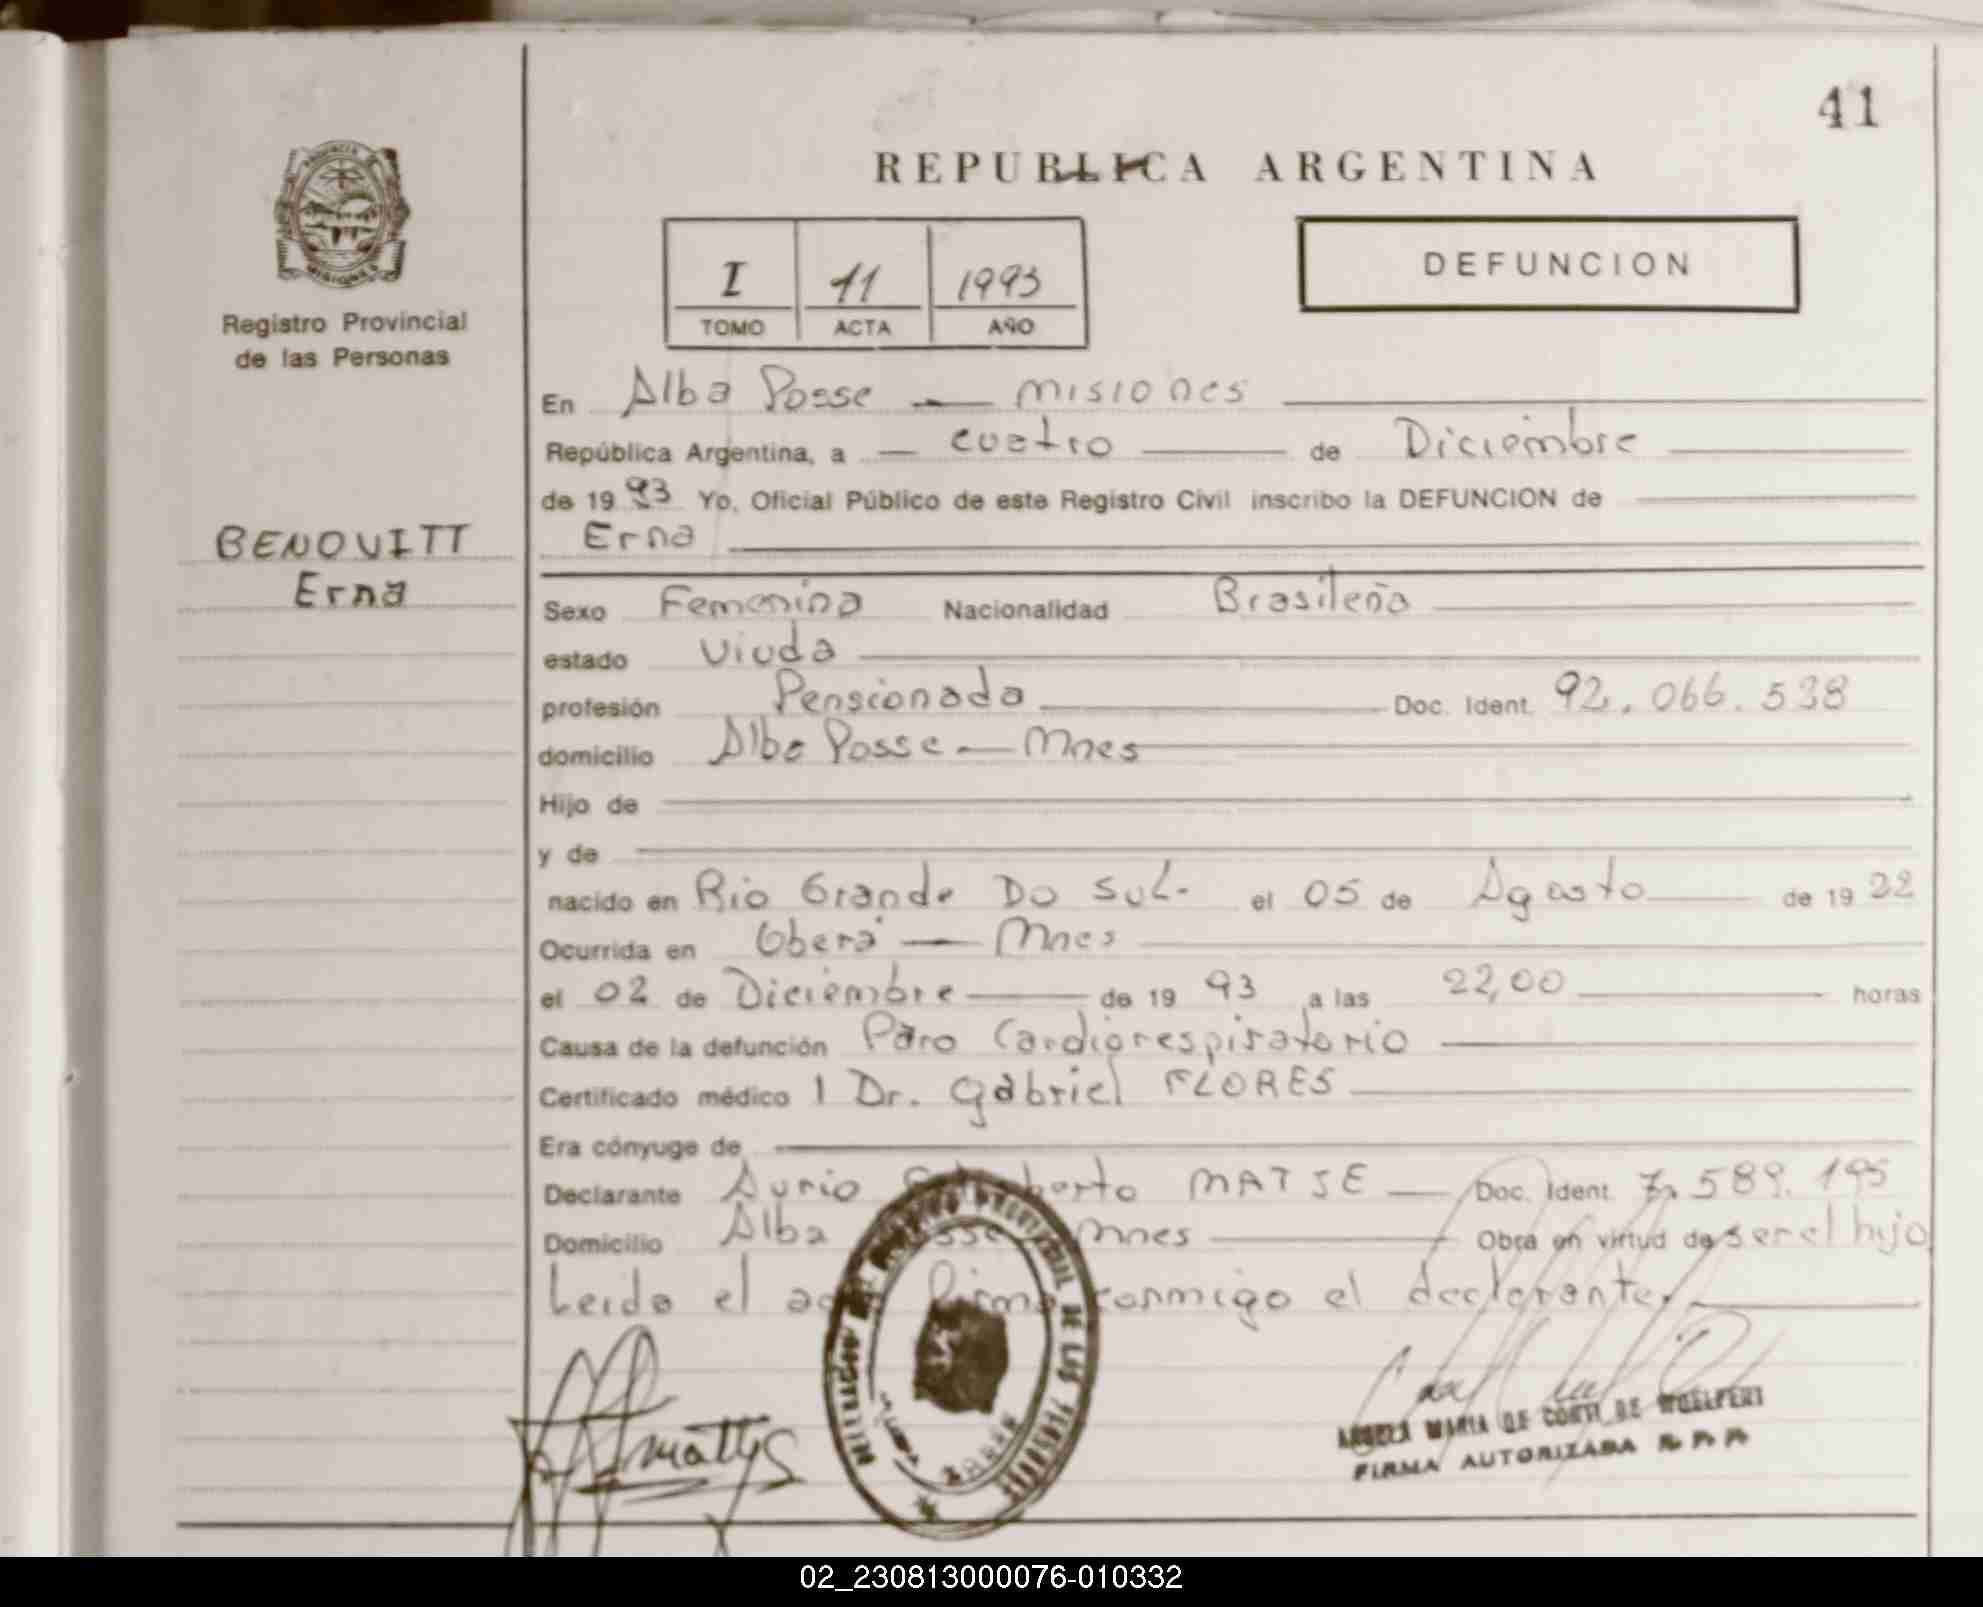 41
REPUBLICA ARGENTINA
PROVINCIA DE
MISIONES
Registro Provincial
de las Personas
I 11 1993
TOMO ACTA AÑO
DEFUNCION
En Alba Posse — misiones
República Argentina, a — cuatro — de Diciembre
de 19 93 Yo, Oficial Público de este Registro Civil inscribo la DEFUNCION de
BENOVITT
Erna
Erna
Sexo Femenina Nacionalidad Brasileña
estado Viuda
profesión Pensionada Doc. Ident. 92.066.538
domicilio Alba Posse — Mnes
Hijo de
y de
nacido en Rio Grande Do Sul- el 05 de Agosto de 19 22
Ocurrida en Oberá — Mnes
el 02 de Diciembre — de 19 93 a las 22,00 horas
Causa de la defunción Paro Cardiorespiratorio
Certificado médico 1 Dr. Gabriel FLORES
Era cónyuge de
Declarante Aurio MATJE — Doc. Ident. 7.589.195
Domicilio Alba Posse Mnes Obra en virtud de ser el hijo
Leida el acta firma conmigo el declarante.
PROVINCIAL DE LAS PERSONAS
MARIA DE CONTI DE WOELFERT
FIRMA AUTORIZADA R. P. P.
02_230813000076-010332